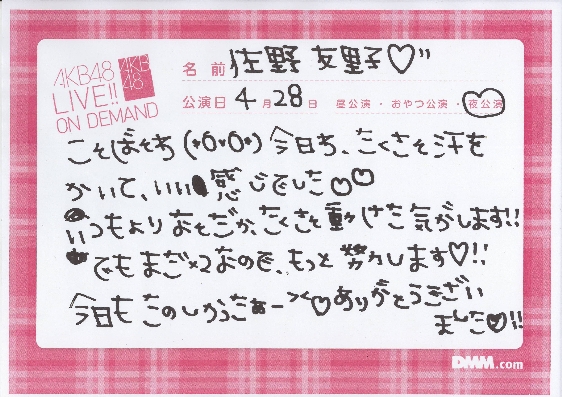 AKB48
LIVE!!
ON DEMAND
AKB
48
名前 佐野友里子♡"
公演日 4月28日 昼公演・おやつ公演・夜公演
こそばそち(*0*0*)今日も、たくさそ汗を
かいて、いい感じでした♡♡
いつもよりなそだか、たくさそ動けた気がします!!
でもまだ×2なので、もっと努力します♡!!
今日もたのしかったぁー><♡ありがとうござい
ました♡!!
DMM.com